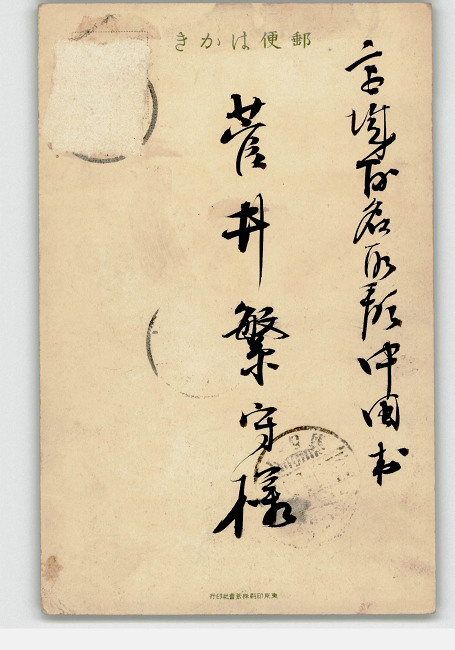 郵便はかき
宮城縣名取郡中田村
菅井繁守様
東京印刷株式會社印行